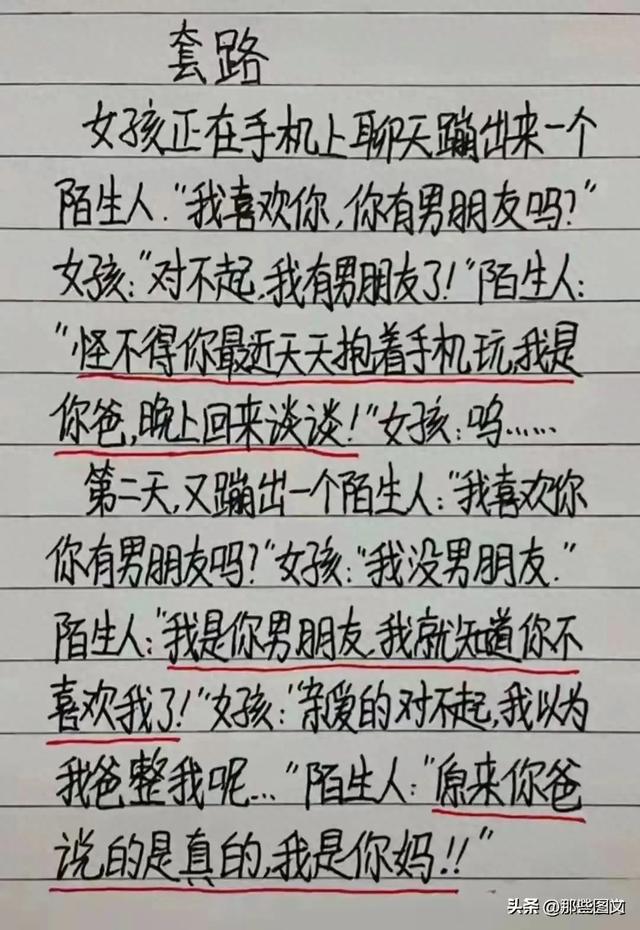 套路
女孩正在手机上聊天蹦出来一个
陌生人."我喜欢你,你有男朋友吗?"
女孩:"对不起,我有男朋友了!"陌生人:
"怪不得你最近天天抱着手机玩,我是
你爸,晚上回来谈谈!"女孩:呜……
第二天,又蹦出一个陌生人:"我喜欢你
你有男朋友吗?"女孩:"我没男朋友."
陌生人:"我是你男朋友,我就知道你不
喜欢我了!"女孩:"亲爱的对不起,我以为
我爸整我呢..."陌生人:"原来你爸
说的是真的,我是你妈!!"
头条 @那些图文